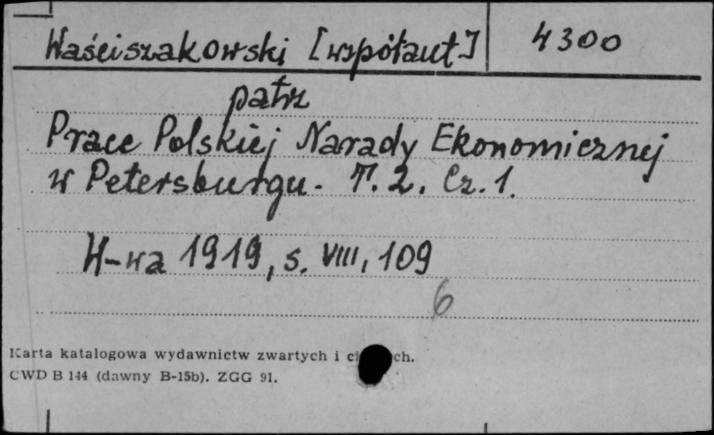 Waściszakowski [współaut] 4300
patrz
Prace Polskiej Narady Ekonomicznej
w Petersburgu. T. 2. Cz. 1.
W-wa 1919, s. VIII, 109
6
Karta katalogowa wydawnictw zwartych i
CWD B 144 (dawny B-15b). ZGG 91.